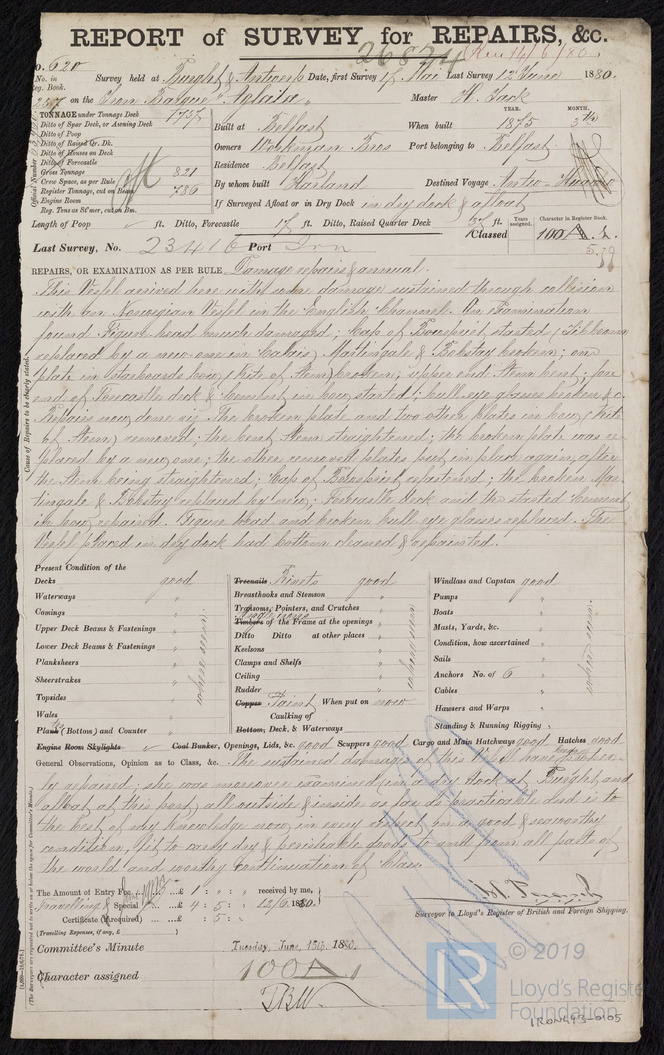 REPORT of SURVEY for REPAIRS, &c.
26824 Rec 14/6/80
No. 620
No. in Reg. Book. Survey held at Burght & Antwerp Date, first Survey 17 Mai Last Survey 12 June 1880.
257 on the Iron Barque "Aglaia" Master H. Jack
TONNAGE under Tonnage Deck 1757
Ditto of Spar Deck, or Awning Deck
Ditto of Poop
Ditto of Raised Qr. Dk.
Ditto of Houses on Deck
Ditto of Forecastle
Gross Tonnage 821
Crew Space, as per Rule
Register Tonnage, cut on Beam 786
Engine Room
Reg. Tons as St'mer, cut on Bm.
Official Number
YEAR. MONTH.
Built at Belfast When built 1875 3rd
Owners Workman Bros Port belonging to Belfast
Residence Belfast
By whom built Harland Destined Voyage
If Surveyed Afloat or in Dry Dock in dry dock & afloat
Length of Poop ft. Ditto, Forecastle 17 ft. Ditto, Raised Quarter Deck ft.
Classed Years assigned. Character in Register Book. 100 A. 1.
5.79
Last Survey, No. 23416 Port Irn
REPAIRS, OR EXAMINATION AS PER RULE Damage repairs & annual.
This Vessel arrived here with some damage sustained through collision
with an Norwegian Vessel in the English Channel. On Examination
found Figure head much damaged; Cap of Bowspriet started (Jibboom
replaced by a new one in Calais) Martingale & Bobstay broken; one
plate in starboards bow (kite of Stem) broken; upper end Stem bent; fore
end of Forecastle deck & Cement in bow started; bull eye glasses broken &c.
Repairs now done viz. The broken plate and two other plates in bow (kite
of Stem) removed; the bent Stem straightened; the broken plate was re-
placed by a new one; the other removed plates put in place again, after
the Stem being straightened; Cap of Bowspriet refastened; the broken Mar-
tingale & Bobstay replaced by new; Forecastle deck and the started Cement
in bow repaired. Figure head and broken bull eye glasses replaced. The
Vessel placed in dry dock had bottom cleaned & repainted.
Cause of Repairs to be clearly stated.
Present Condition of the
Decks good
Waterways "
Comings "
Upper Deck Beams & Fastenings "
Lower Deck Beams & Fastenings "
Planksheers "
Sheerstrakes "
Topsides "
Wales "
Plank (Bottom) and Counter "
where seen
Treenails Rivets good
Breasthooks and Stemson "
Transoms, Pointers, and Crutches "
Timbers of the Frame at the openings "
Ditto Ditto at other places "
Keelsons "
Clamps and Shelfs "
Ceiling "
Rudder "
Copper Paint When put on now
Caulking of
Bottom, Deck, & Waterways "
where seen
Windlass and Capstan good
Pumps "
Boats "
Masts, Yards, &c. "
Condition, how ascertained "
Sails "
Anchors No. of 6 "
Cables "
Hawsers and Warps "
Standing & Running Rigging "
where seen
Engine Room Skylights Coal Bunker, Openings, Lids, &c. good Scuppers good Cargo and Main Hatchways good Hatches good
General Observations, Opinion as to Class, &c. The sustained damages of this Vessel have been proper-
ly repaired; she was moreover examined in a dry dock at Burght and
afloat at this port, all outside & inside as far as practicable and is to
the best of my knowledge now in every respect in a good & seaworthy
condition, fit to carry dry & perishable goods to and from all parts of
the world and worthy continuation of Class
The Amount of Entry Fee ...£ 1 : " : " received by me,
Travelling & Special ...£ 4 : 5 : " 12/6.1880.
Certificate (if required) ...£ " : 5 : "
(Travelling Expenses, if any, £ )
Surveyor to Lloyd's Register of British and Foreign Shipping.
Committee's Minute Tuesday, June, 15th. 1880.
Character assigned 100 A 1
(The Surveyors are requested not to write on or below the space for Committee's Minute.)
LR
© 2019
Lloyd's Register
Foundation
IRON493-0105